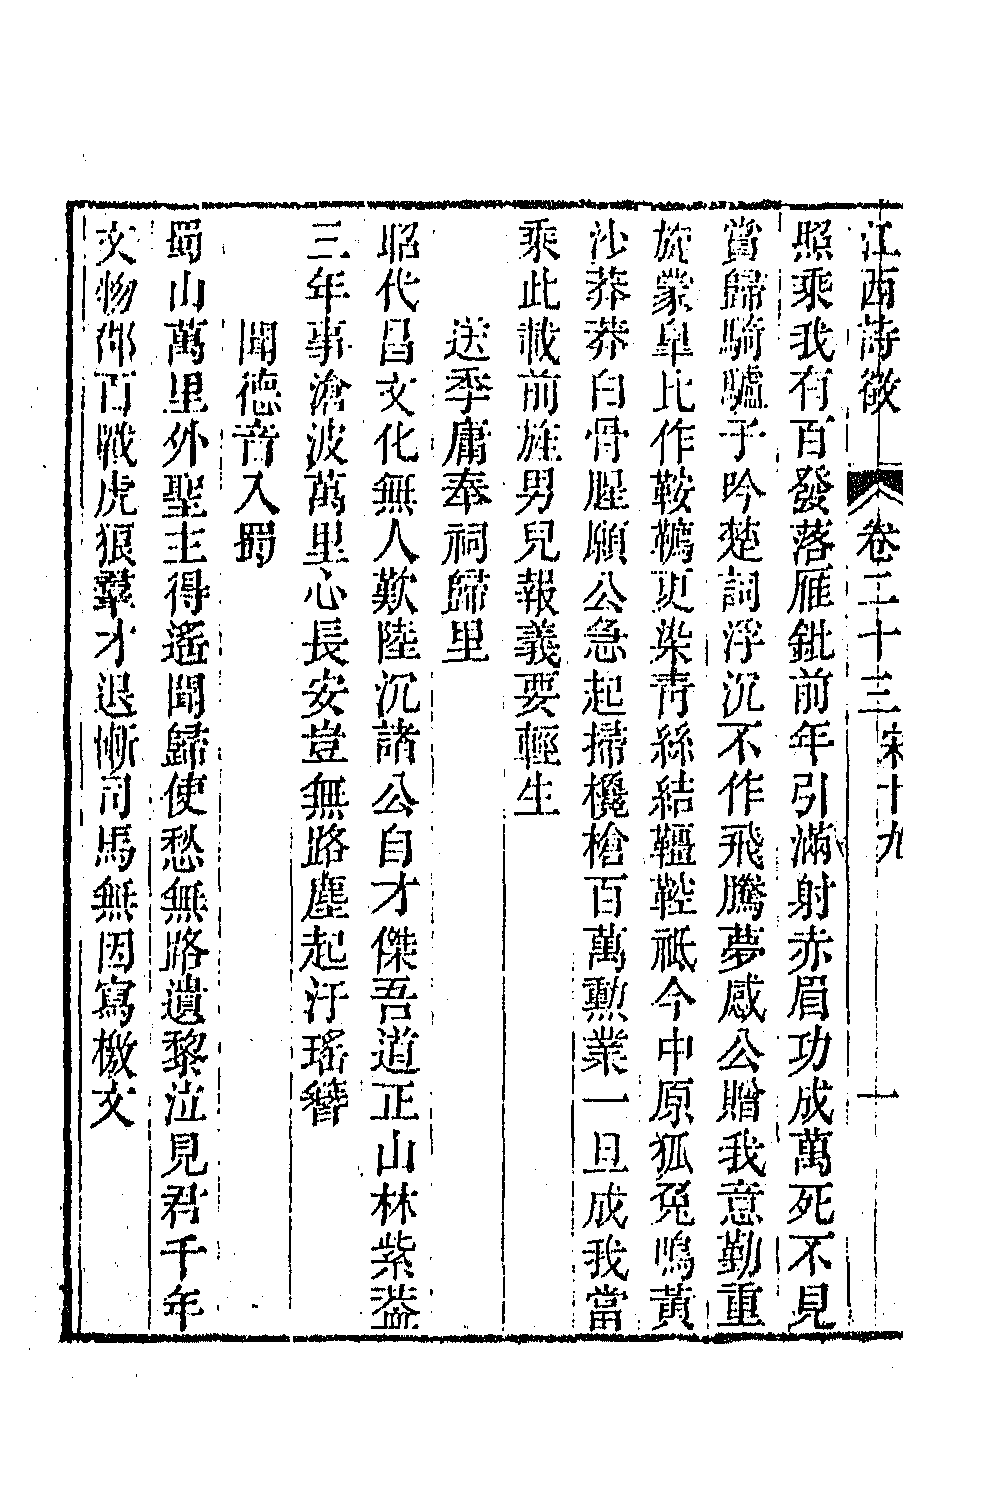 江西詩徵 卷二十三 宋十九 一
照乘我有百發落雁鈚前年引滿射赤眉功成萬死不見
當歸騎驢于吟楚詞浮沉不作飛騰夢感公贈我意勤重
旋蒙皐比作鞍韉更染青絲結韁鞚祗今中原狐兔鳴黃
沙莽莽白骨腥願公急起掃欃槍百萬勲業一旦成我當
乘此載前旌男兒報義要輕生
送季庸奉祠歸里
昭代昌文化無人歎陸沉諸公自才傑吾道正山林紫溢
三年事滄波萬里心長安豈無路塵起汙瑤簪
聞德音入蜀
蜀山萬里外聖主得遙聞歸使愁無路遺黎泣見君千年
文物邦百戰虎狼羣才退慚司馬無因寫檄文